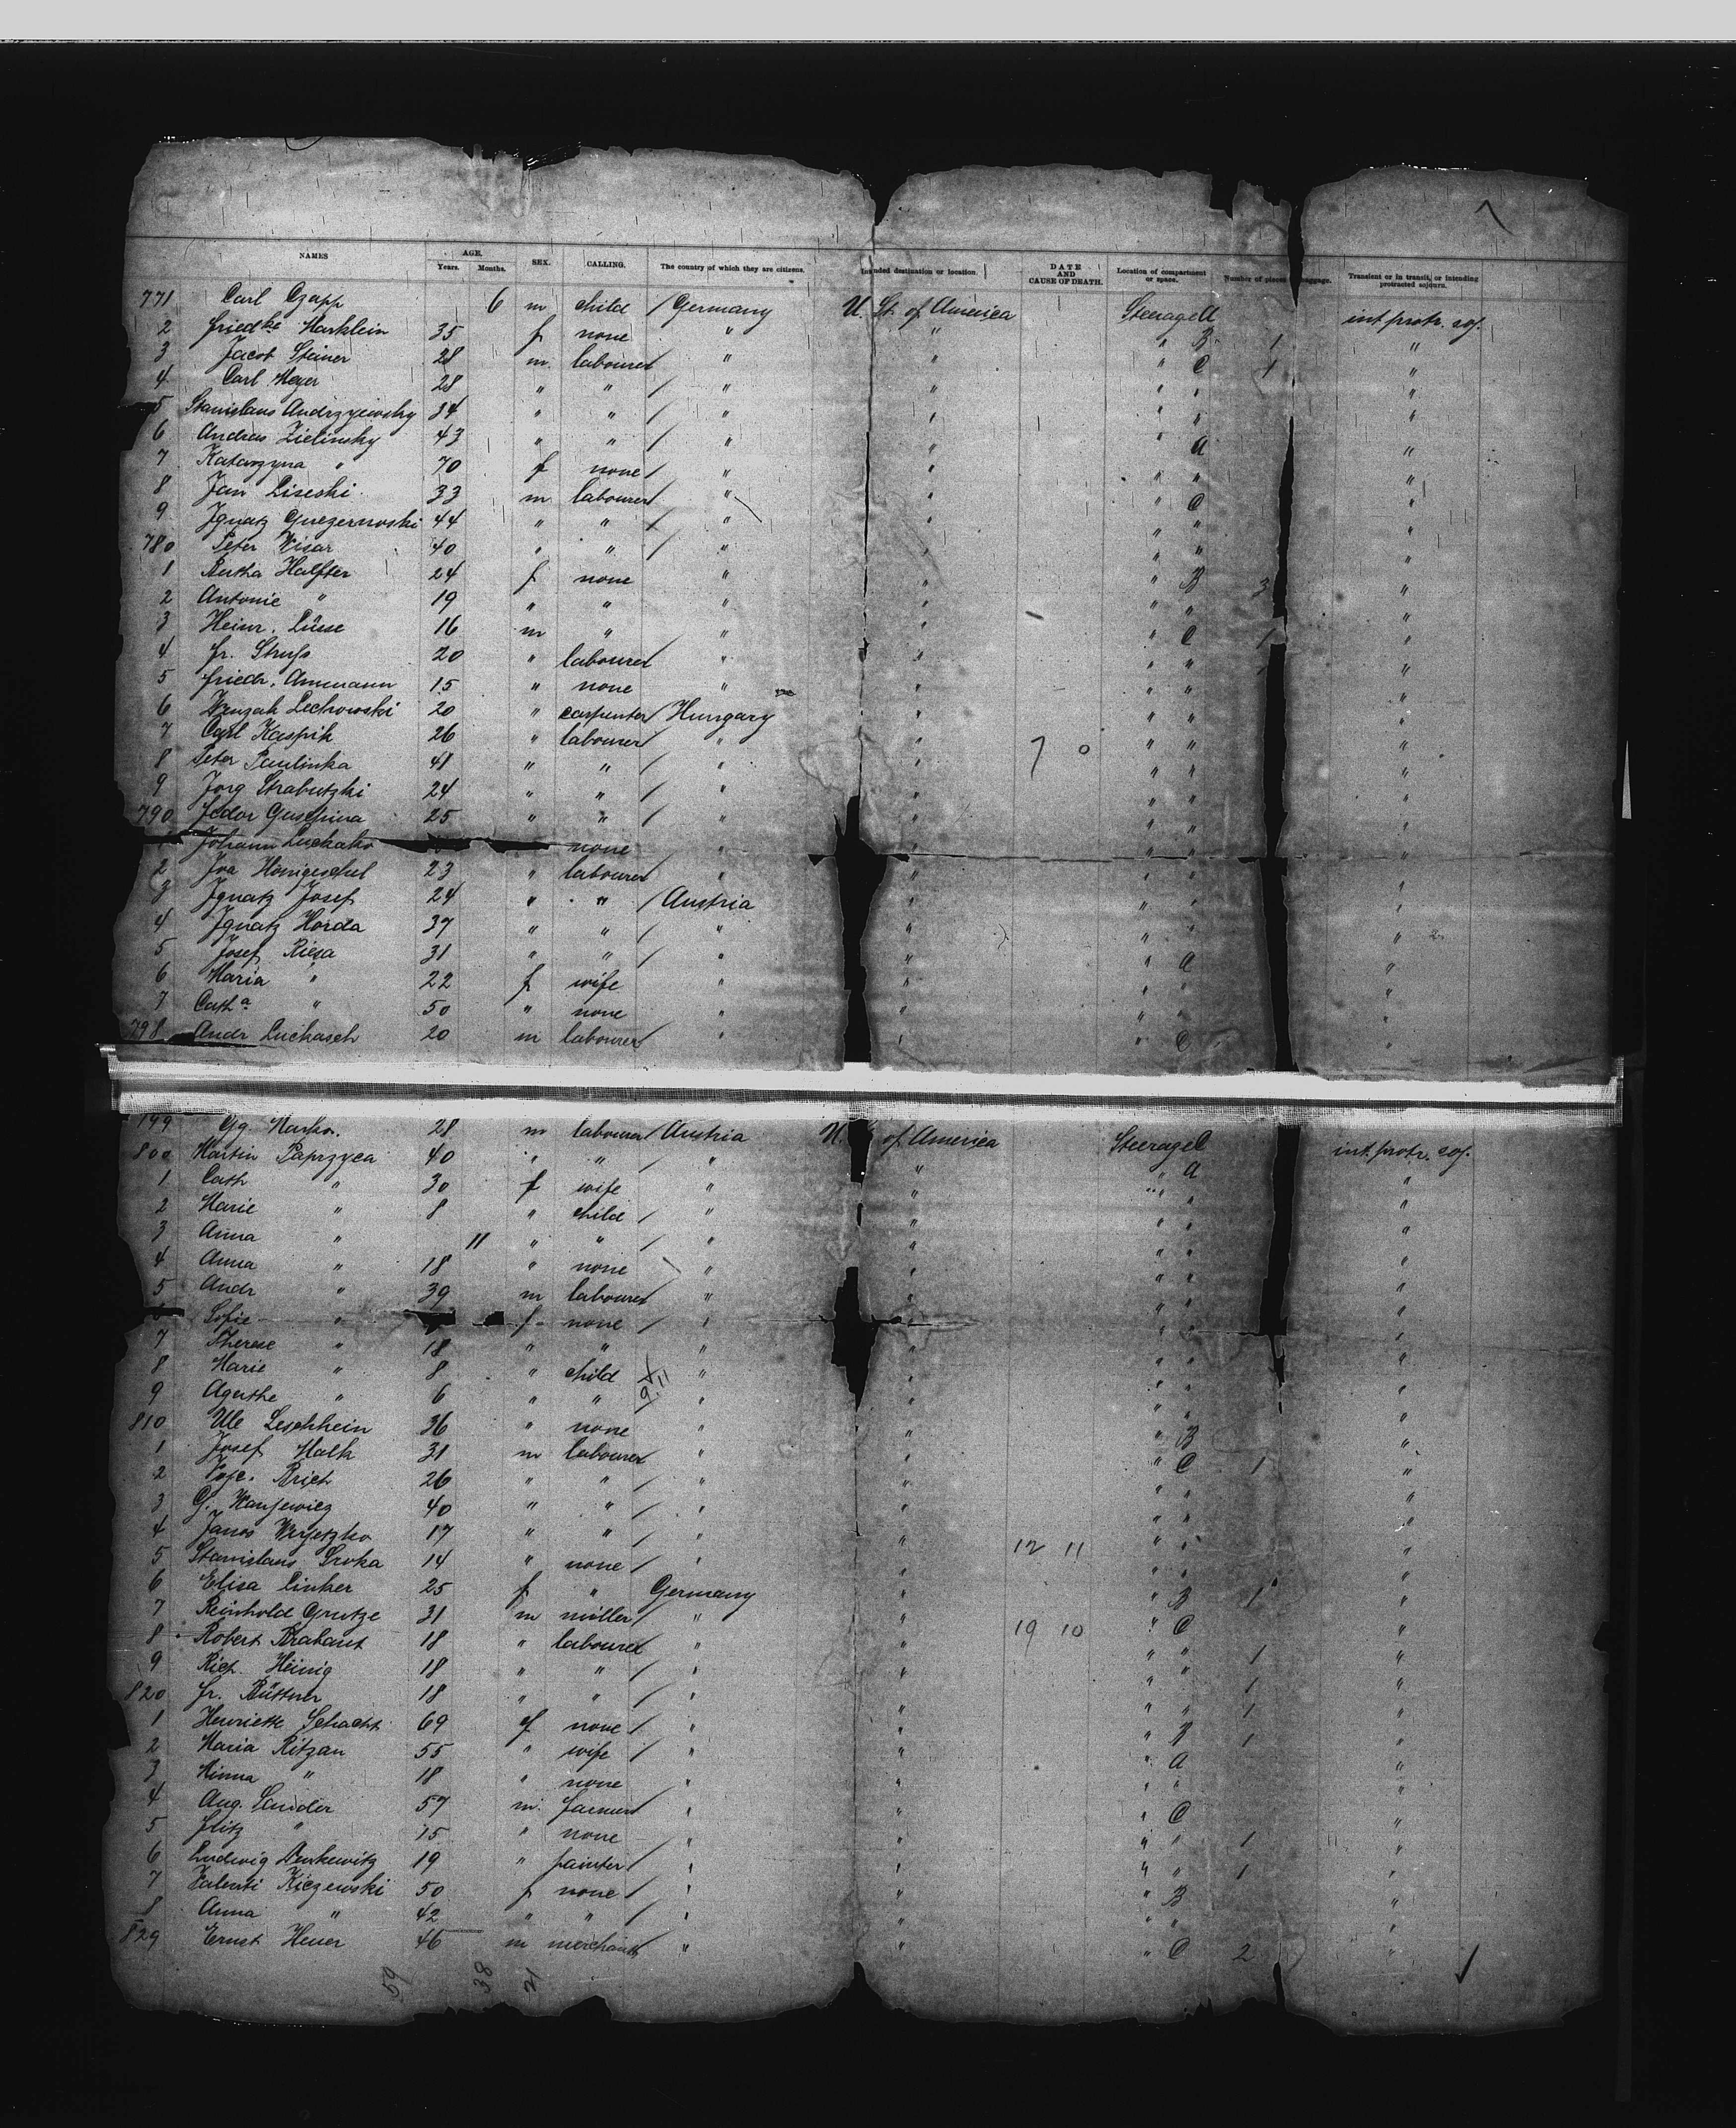 NAMES AGE. Years. Months. SEX. CALLING. The country of which they are citizens. Intended destination or location. DATE AND CAUSE OF DEATH. Location of compartment or space. Number of pieces baggage. Transient or in transit, or intending protracted sojourn.
771 Carl Czapp 6 m child / Germany U. St. of America Steerage A int. protr. soj.
2 Friedke Harklein 35 f none " " " B 1 "
3 Jacob Steiner 28 m labourer " " " C 1 "
4 Carl Meyer 28 " " / " " " " "
5 Stanislaus Andrzyewsky 34 " " / " " " " "
6 Andreas Zielinsky 43 " " / " " " A "
7 Katarzyna " 70 f none / " " " " "
8 Jan Liseski 33 m labourer " " " C "
9 Ignatz 44 " " / " " " " "
780 Peter Wisar 40 " " / " " " " "
1 Bertha Halfter 24 f none " " " B 3 "
2 Antonie " 19 " " " " " " "
3 Heinr. Lüsse 16 m " " " " C 1 "
4 Fr. Struss 20 " labourer " " " " "
5 Friedr. Ammann 15 " none " " " " "
6 Lechowski 20 " carpenter / Hungary " " " "
7 Carl Kaspik 26 " labourer / " " 7 0 " " "
8 Peter Paulinka 41 " " / " " " " "
9 Jorg Strabutzki 24 " " / " " " " "
790 Fedor Guschina 25 " " / " " " " "
Johann Luckako none " " " " "
2 Iva 23 " labourer " " " " "
3 Ignatz Josef 24 " " / Austria " " " "
4 Ignatz Horda 37 " " / " " " " "
5 Josef Riesa 31 " " / " " " A "
6 Maria " 22 f wife " " " " "
7 Catha " 50 " none " " " " "
798 Andr Luckasch 20 m labourer / " " " C "
799 Gg. Marko. 28 m labourer / Austria U. of America Steerage C int. protr. soj.
800 Martin Paprzyca 40 " " / " " " A "
1 Cath " 30 f wife " " " " "
2 Marie " 8 " child / " " " " "
3 Anna " 11 " " / " " " " "
4 Anna " 18 " none " " " " "
5 Andr " 39 m labourer " " " " "
Sofie " f none / " " " " "
7 Therese " 18 " " " " " " "
8 Marie " 8 " child " " " " "
9 Agathe " 6 " " 9.11 " " " " "
810 Ule Leschhein 36 " none " " " B "
1 Josef Malk 31 m labourer " " " C 1 "
2 Brich 26 " " / " " " " "
3 G. 40 " " / " " " " "
4 Janos 17 " " / " " " " "
5 Stanislaus Sroka 14 " none / " " 12 11 " " "
6 Elisa Linker 25 f " Germany " " B 1 "
7 Reinhold Grutze 31 m miller / " " 19 10 " C "
8 Robert Brabant 18 " labourer " " " " 1 "
9 Rich. Heinig 18 " " / " " " " 1 "
820 Fr. Büttner 18 " " / " " " " 1 "
1 Henriette Schacht 69 f none / " " " B 1 "
2 Maria Ritzan 55 " wife / " " " A "
3 Minna " 18 " none " " " " "
4 Aug. Sander 57 m. farmer " " " C "
5 Flitz " 15 " none " " " " 1 "
6 Ludwig Derkewitz 19 " painter / " " " " 1 "
7 Valenti Kiczewski 50 f none / " " " B "
8 Anna " 42 " " / " " " " "
829 Ernst Heuer 46 m merchant " " " C 2 "
59 38 21